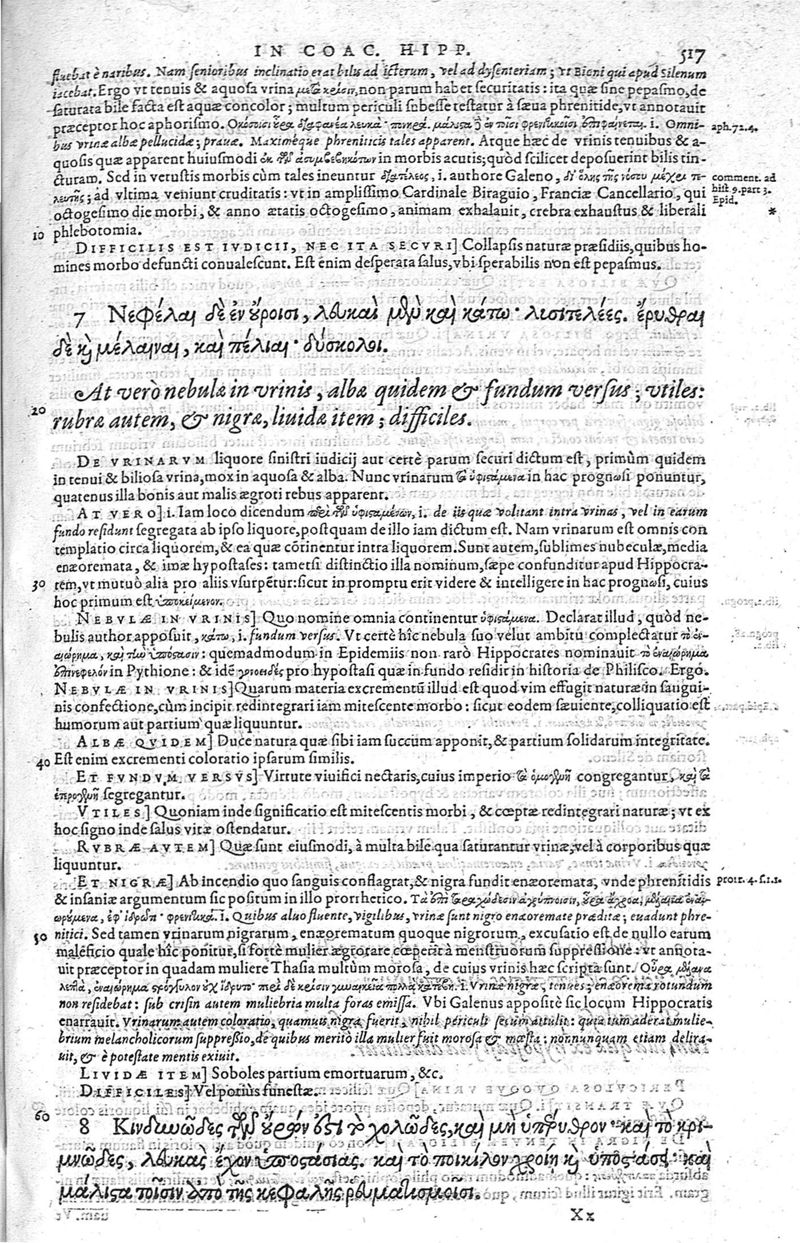 IN COAC. HIPP. 517
fluebat è naribus. Nam senioribus inclinatio erat bilis ad icterum, vel ad dysenteriam; vt Bioni qui apud Silenum
iacebat. Ergo vt tenuis & aquosa vrina μετὰ κρίσιν, non parum habet securitatis: ita quæ sine pepasmo, de
saturata bile facta est aquæ concolor; multum periculi subesse testatur à sæua phrenitide, vt annotauit
præceptor hoc aphorismo. i. Omni-
bus vrinæ albæ pellucidæ; prauæ. Maximéque phreniticis tales apparent. Atque hæc de vrinis tenuibus & a-
aph. 72. 4.
quosis quæ apparent huiusmodi in morbis acutis; quòd scilicet deposuerint bilis tin-
cturam. Sed in vetustis morbis cùm tales ineuntur i. authore Galeno, δι' ὅλης τῆς νόσου μέχρι τε-
λευτῆς; ad vltima veniunt cruditatis: vt in amplissimo Cardinale Biraguio, Franciæ Cancellario, qui
comment. ad
hist 9. part 3.
Epid.
octogesimo die morbi, & anno ætatis octogesimo, animam exhalauit, crebra exhaustus & liberali
*
10 phlebotomia.
DIFFICILIS EST IVDICII, NEC ITA SECVRI] Collapsis naturæ præsidiis, quibus ho-
mines morbo defuncti conualescunt. Est enim desperata salus, vbi sperabilis non est pepasmus.
7 Νεφέλαι δὲ ἐν ὄροισι, λευκαὶ μὲν καὶ κάτω· λυσιτελέες. ἐρυθραὶ
δὲ κỳ μέλαιναι, καὶ πέλιαι· δύσκολοι.
At verò nebulæ in vrinis, albæ quidem & fundum versus; vtiles:
20 rubræ autem, & nigræ, liuidæ item; difficiles.
DE VRINARVM liquore sinistri iudicij aut certè parum securi dictum est, primùm quidem
in tenui & biliosa vrina, mox in aquosa & alba. Nunc vrinarum τὰ ὑφιστάμενα in hac prognosi ponuntur,
quatenus illa bonis aut malis ægroti rebus apparent.
AT VERO] i. Iam loco dicendum περὶ τῶν ὑφισταμένων, i. de iis quæ volitant intra vrinas, vel in earum
fundo resident segregata ab ipso liquore, postquam de illo iam dictum est. Nam vrinarum est omnis con
templatio circa liquorem, & ea quæ cõtinentur intra liquorem. Sunt autem, sublimes nubeculæ, media
enæoremata, & imæ hypostases: tametsi distinctio illa nominum, sæpe confunditur apud Hippocra-
30 tem, vt mutuò alia pro aliis vsurpẽtur: sicut in promptu erit videre & intelligere in hac prognosi, cuius
hoc primum est ὑποκείμενον.
NEBVLÆ IN VRINIS] Quo nomine omnia continentur ὑφιστάμενα. Declarat illud, quòd ne-
bulis author apposuit, κάτω, i. fundum versus. Vt certè hîc nebula suo velut ambitu complectatur τὸ ἐν-
αιώρημα, καὶ τὴν ὑπόστασιν: quemadmodum in Epidemiis non rarò Hippocrates nominauit τὸ ἐναιώρημα
ἐπινέφελον in Pythione: & idẽ pro hypostasi quæ in fundo residit in historia de Philisco. Ergò.
NEBVLÆ IN VRINIS] Quarum materia excrementũ illud est quod vim effugit naturæ in sangui-
nis confectione, cùm incipit redintegrari iam mitescente morbo: sicut eodem sæuiente, colliquatio est
humorum aut partium quæ liquuntur.
ALBÆ QVIDEM] Duce natura quæ sibi iam succum apponit, & partium solidarum integritate.
40 Est enim excrementi coloratio ipsarum similis.
ET FVNDVM VERSVS] Virtute viuifici nectaris, cuius imperio τὰ ὁμογενῆ congregantur, καὶ τὰ
ἑτερογενῆ segregantur.
VTILES] Quoniam inde significatio est mitescentis morbi, & cœptæ redintegrari naturæ; vt ex
hoc signo inde salus vitæ ostendatur.
RVBRÆ AVTEM] Quæ sunt eiusmodi, à multa bile qua saturantur vrinæ, vel à corporibus quæ
liquuntur.
ET NIGRÆ] Ab incendio quo sanguis conflagrat, & nigra fundit enæoremata, vnde phrenitidis
protr. 4. s. 1. 1.
& insaniæ argumentum sic positum in illo prorrhetico.
i. Quibus aluo fluente, vigilibus, vrinæ sunt nigro enæoremate præditæ; euadunt phre-
50 nitici. Sed tamen vrinarum nigrarum, enæorematum quoque nigrorum, excusatio est de nullo earum
maleficio quale hîc ponitur, si fortè mulier ægrotare cœperit à menstruorum suppressione: vt annota-
uit præceptor in quadam muliere Thasia multùm morosa, de cuius vrinis hæc scripta sunt. Οὖρα μέλανα
λεπτὰ, i. Vrinæ nigræ, tenues; enæorema rotundum
non residebat: sub crisin autem muliebria multa foras emissa. Vbi Galenus appositè sic locum Hippocratis
enarrauit. Vrinarum autem coloratio, quamuis nigra fuerit, nihil periculi secum attulit: quia tum aderat mulie-
brium melancholicorum suppressio, de quibus meritò illa mulier fuit morosa & mœsta; nonnunquam etiam delira-
uit, & è potestate mentis exiuit.
LIVIDÆ ITEM] Soboles partium emortuarum, &c.
DIFFICILES] Vel potius funestæ.
60
8 Κινδυνῶδες τῶν οὔρων ἐστὶ τὸ χολῶδες, καὶ μὴ ὑπέρυθρον· καὶ τὸ κρι-
μνῶδες, λευκὰς ἔχον ὑποστάσιας. καὶ τὸ ποικίλον χροίῃ κỳ ὑποστάσι· καὶ
μάλιστα τοῖσιν ἀπὸ τῆς κεφαλῆς ῥευματισμοῖσι.
Xx